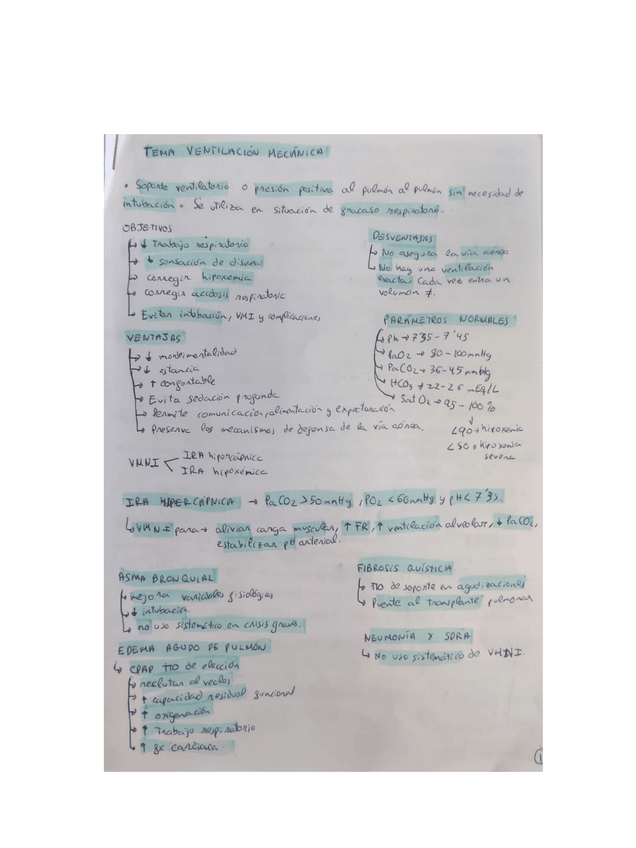 TEMA VENTILACIÓN MECÁNICA
• Soporte ventilatorio o presión positiva al pulmón al pulmón sin necesidad de
intubación. Se utiliza en situación de fracaso respiratorio.
OBJETIVOS
↳ ↓ Trabajo respiratorio
↳ ↓ sensación de disnea
↳ corregir hipoxemia
↳ corregir acidosis respiratoria
↳ Evitan intubación, VMI y complicaciones
DESVENTAJAS
↳ No asegura la vía aérea
↳ No hay una ventilación
exacta cada vez entra un
volumen ≠.
VENTAJAS
↳ ↓ morbimortalidad
↳ ↓ estancia
↳ ↑ confortable
↳ Evita sedación profunda
↳ Permite comunicación, alimentación y expectoración
↳ Preserva los mecanismos de defensa de la vía aérea.
PARÁMETROS NORMALES
↳ PH → 7'35 - 7'45
↳ PaO2 → 80 - 100 mmHg
↳ PaCO2 → 36 - 45 mmHg
↳ HCO3 → 22 - 26 mEq/L
↳ Sat O2 → 95 - 100 %
↓
<90 → hipoxemia
<80 → hipoxemia
severa
VMNI < IRA hipercápnica
IRA hipoxémica
IRA HIPERCÁPNICA → PaCO2 > 50 mmHg, PO2 < 60 mmHg y pH < 7'35.
↳ VMNI para → aliviar carga muscular, ↑ FR, ↑ ventilación alveolar, ↓ PaCO2,
estabilizar pH arterial.
ASMA BRONQUIAL
↳ mejora variables fisiológicas
↳ ↓ intubación.
↳ no uso sistemático en crisis graves.
FIBROSIS QUÍSTICA
↳ TTO de soporte en agudizaciones
↳ Puente al transplante pulmonar
EDEMA AGUDO DE PULMÓN
↳ CPAP TTO de elección
↳ reclutan alveolos
↳ ↑ capacidad residual funcional
↳ ↑ oxigenación
↳ ↑ Trabajo respiratorio
↳ ↑ fx cardiaca.
NEUMONÍA X SDRA
↳ No uso sistemático de VMNI.
1